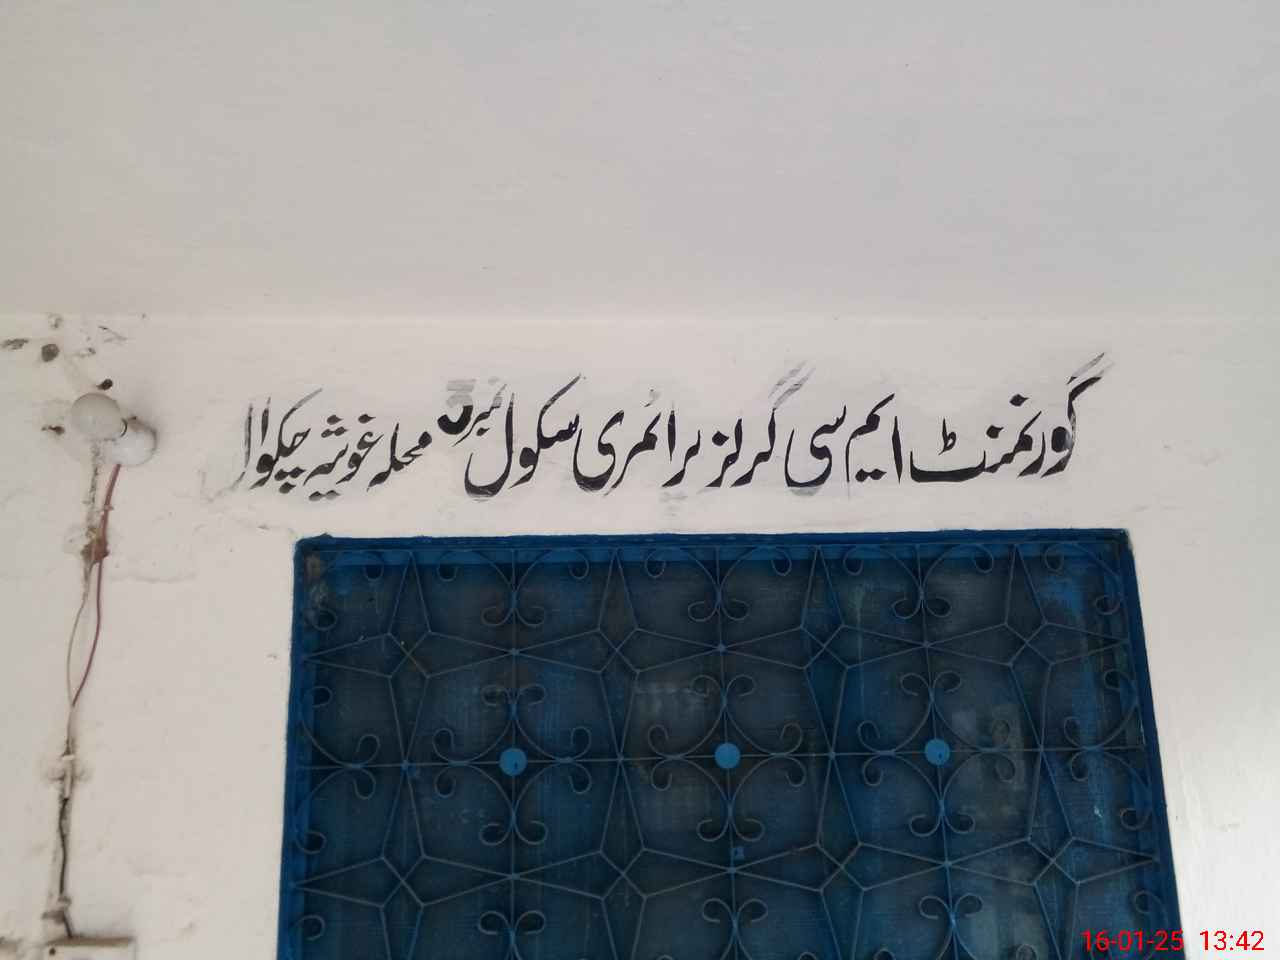 گورنمنٹ ایم سی گرلز پرائمری سکول نمبر محلہ غوثیہ چکوال
16-01-25 13:42